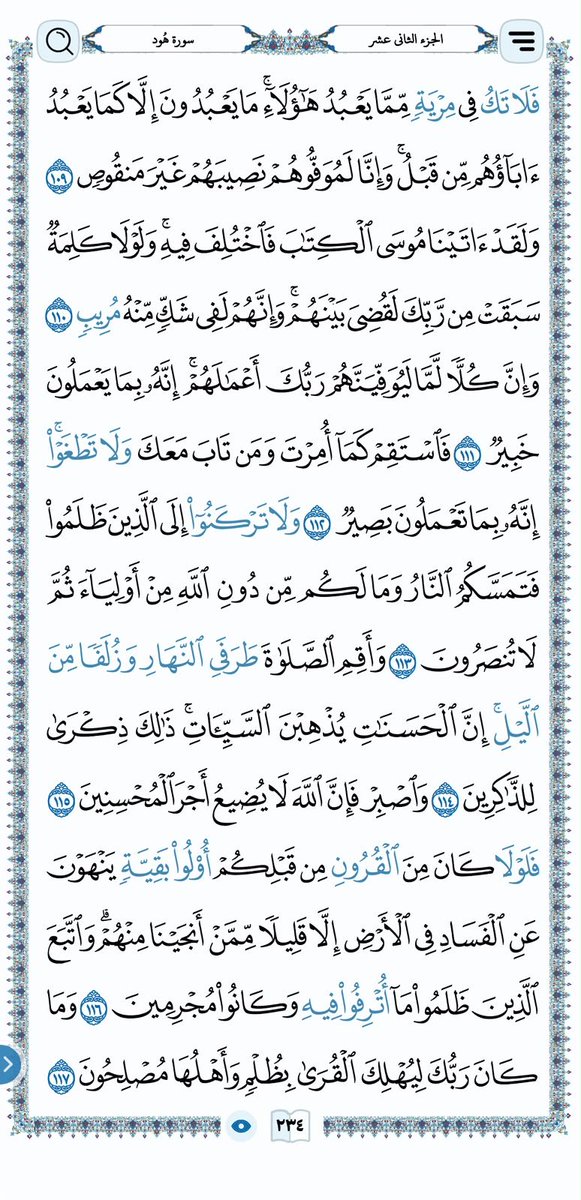 الجزء الثانى عشر
سورة هُود
فَلَا تَكُ فِى مِرْيَةٍ مِّمَّا يَعْبُدُ هَٰٓؤُلَآءِ ۚ مَا يَعْبُدُونَ إِلَّا كَمَا يَعْبُدُ
ءَابَآؤُهُم مِّن قَبْلُ ۚ وَإِنَّا لَمُوَفُّوهُمْ نَصِيبَهُمْ غَيْرَ مَنقُوصٍ ١٠٩
وَلَقَدْ ءَاتَيْنَا مُوسَى ٱلْكِتَٰبَ فَٱخْتُلِفَ فِيهِ ۚ وَلَوْلَا كَلِمَةٌ
سَبَقَتْ مِن رَّبِّكَ لَقُضِىَ بَيْنَهُمْ ۚ وَإِنَّهُمْ لَفِى شَكٍّ مِّنْهُ مُرِيبٍ ١١٠
وَإِنَّ كُلًّا لَّمَّا لَيُوَفِّيَنَّهُمْ رَبُّكَ أَعْمَٰلَهُمْ ۚ إِنَّهُۥ بِمَا يَعْمَلُونَ
خَبِيرٌ ١١١ فَٱسْتَقِمْ كَمَآ أُمِرْتَ وَمَن تَابَ مَعَكَ وَلَا تَطْغَوْا۟ ۚ
إِنَّهُۥ بِمَا تَعْمَلُونَ بَصِيرٌ ١١٢ وَلَا تَرْكَنُوٓا۟ إِلَى ٱلَّذِينَ ظَلَمُوا۟
فَتَمَسَّكُمُ ٱلنَّارُ وَمَا لَكُم مِّن دُونِ ٱللَّهِ مِنْ أَوْلِيَآءَ ثُمَّ
لَا تُنصَرُونَ ١١٣ وَأَقِمِ ٱلصَّلَوٰةَ طَرَفَىِ ٱلنَّهَارِ وَزُلَفًا مِّنَ
ٱلَّيْلِ ۚ إِنَّ ٱلْحَسَنَٰتِ يُذْهِبْنَ ٱلسَّيِّـَٔاتِ ۚ ذَٰلِكَ ذِكْرَىٰ
لِلذَّٰكِرِينَ ١١٤ وَٱصْبِرْ فَإِنَّ ٱللَّهَ لَا يُضِيعُ أَجْرَ ٱلْمُحْسِنِينَ ١١٥
فَلَوْلَا كَانَ مِنَ ٱلْقُرُونِ مِن قَبْلِكُمْ أُو۟لُوا۟ بَقِيَّةٍ يَنْهَوْنَ
عَنِ ٱلْفَسَادِ فِى ٱلْأَرْضِ إِلَّا قَلِيلًا مِّمَّنْ أَنجَيْنَا مِنْهُمْ ۗ وَٱتَّبَعَ
ٱلَّذِينَ ظَلَمُوا۟ مَآ أُتْرِفُوا۟ فِيهِ وَكَانُوا۟ مُجْرِمِينَ ١١٦ وَمَا
كَانَ رَبُّكَ لِيُهْلِكَ ٱلْقُرَىٰ بِظُلْمٍ وَأَهْلُهَا مُصْلِحُونَ ١١٧
٢٣٤